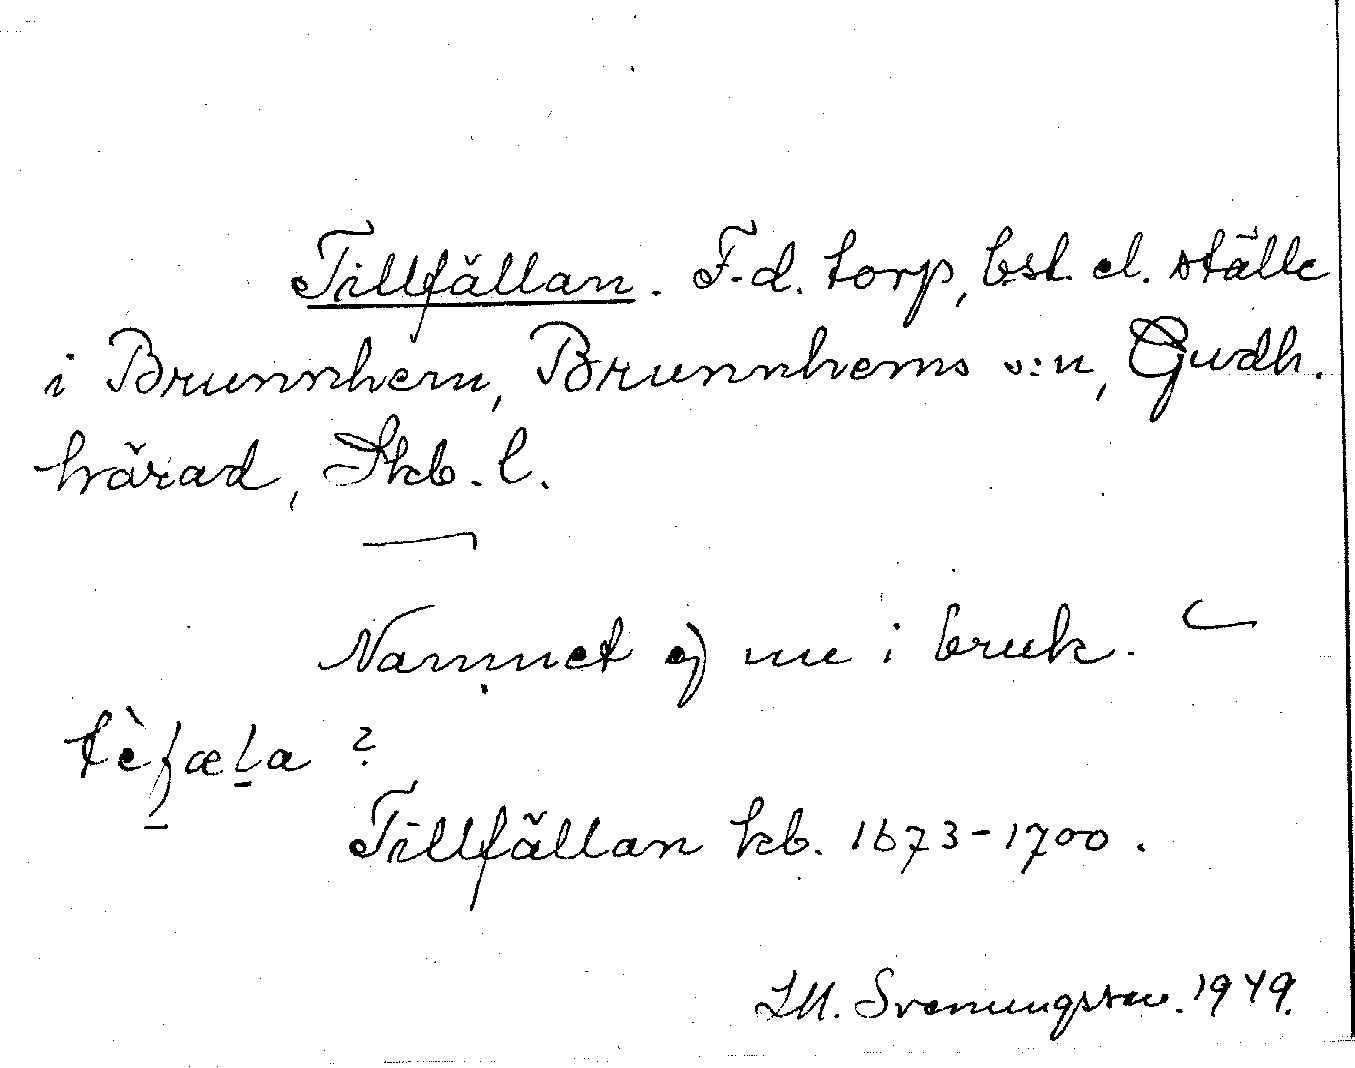 Tillfällan. F.d. torp, bst. el. ställe
i Brunnhem, Brunnhems s:n, Gudh.
härad, Skb. l.
Namnet ej nu i bruk.
tèfæḻa ?
Tillfällan kb. 1673-1700.
LM. Svenungsson. 1949.